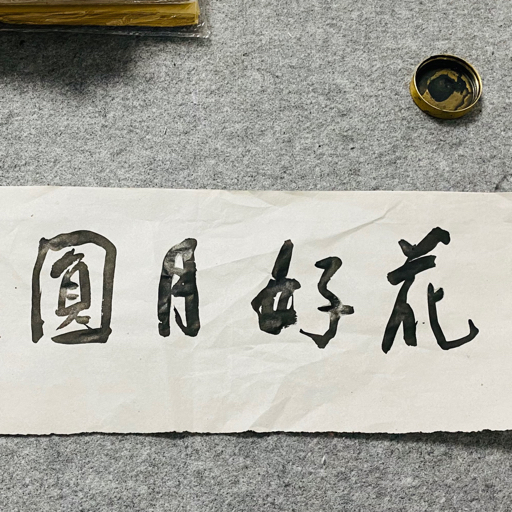 花好月圓